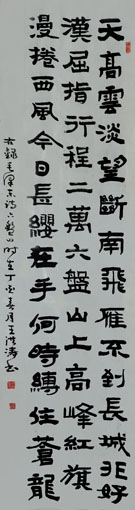 天高雲淡望斷南飛雁不到長城非好
漢屈指行程二萬六盤山上高峰紅旗
漫捲西風今日長纓在手何時縛住蒼龍
右錄毛澤東詩六盤山時在丁亥春月王洪濤書